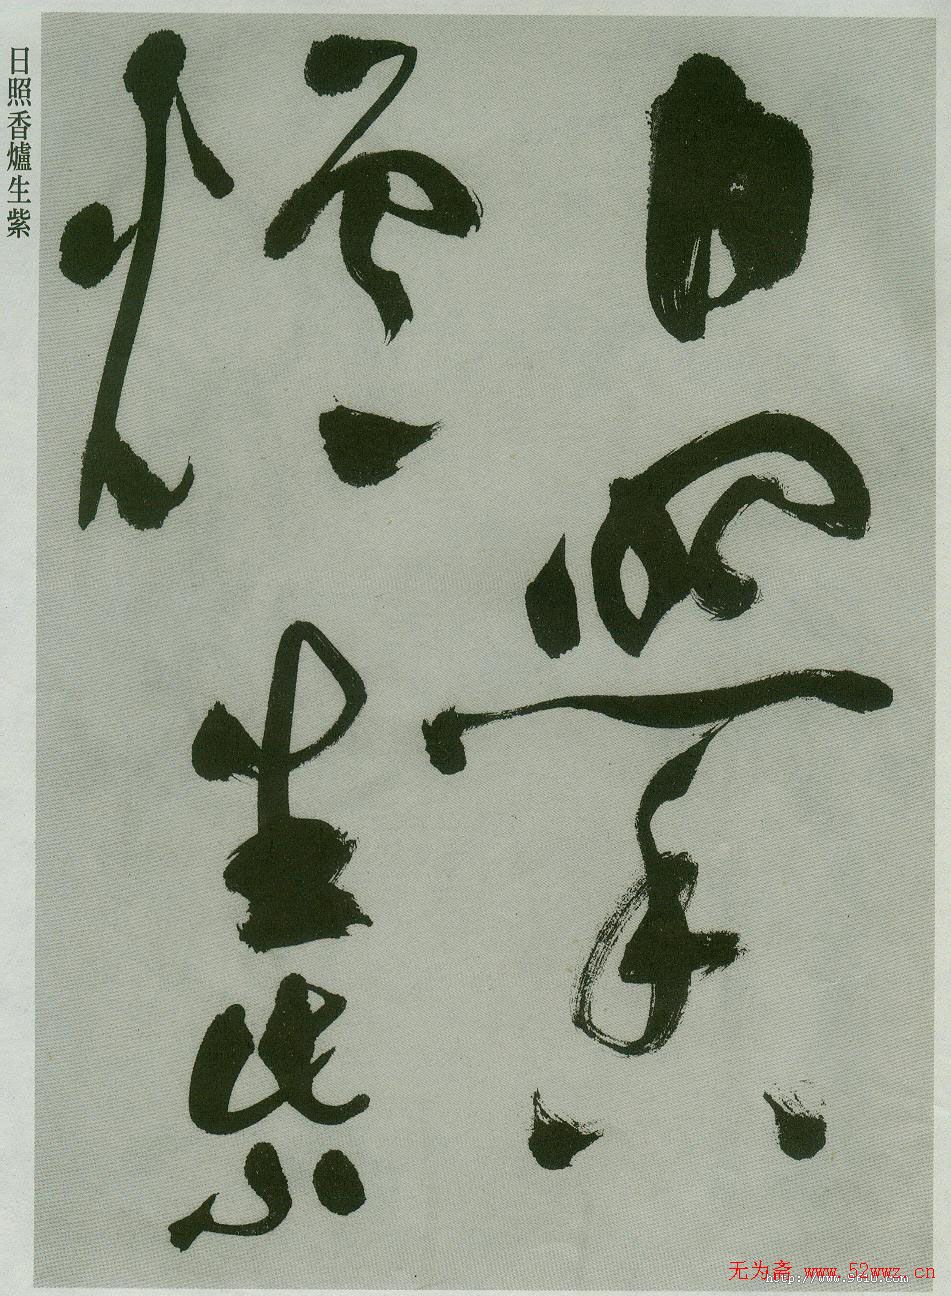 日照香
爐生紫
日照香爐生紫
无为斋 www.52wwz.cn
http://www.9610.com